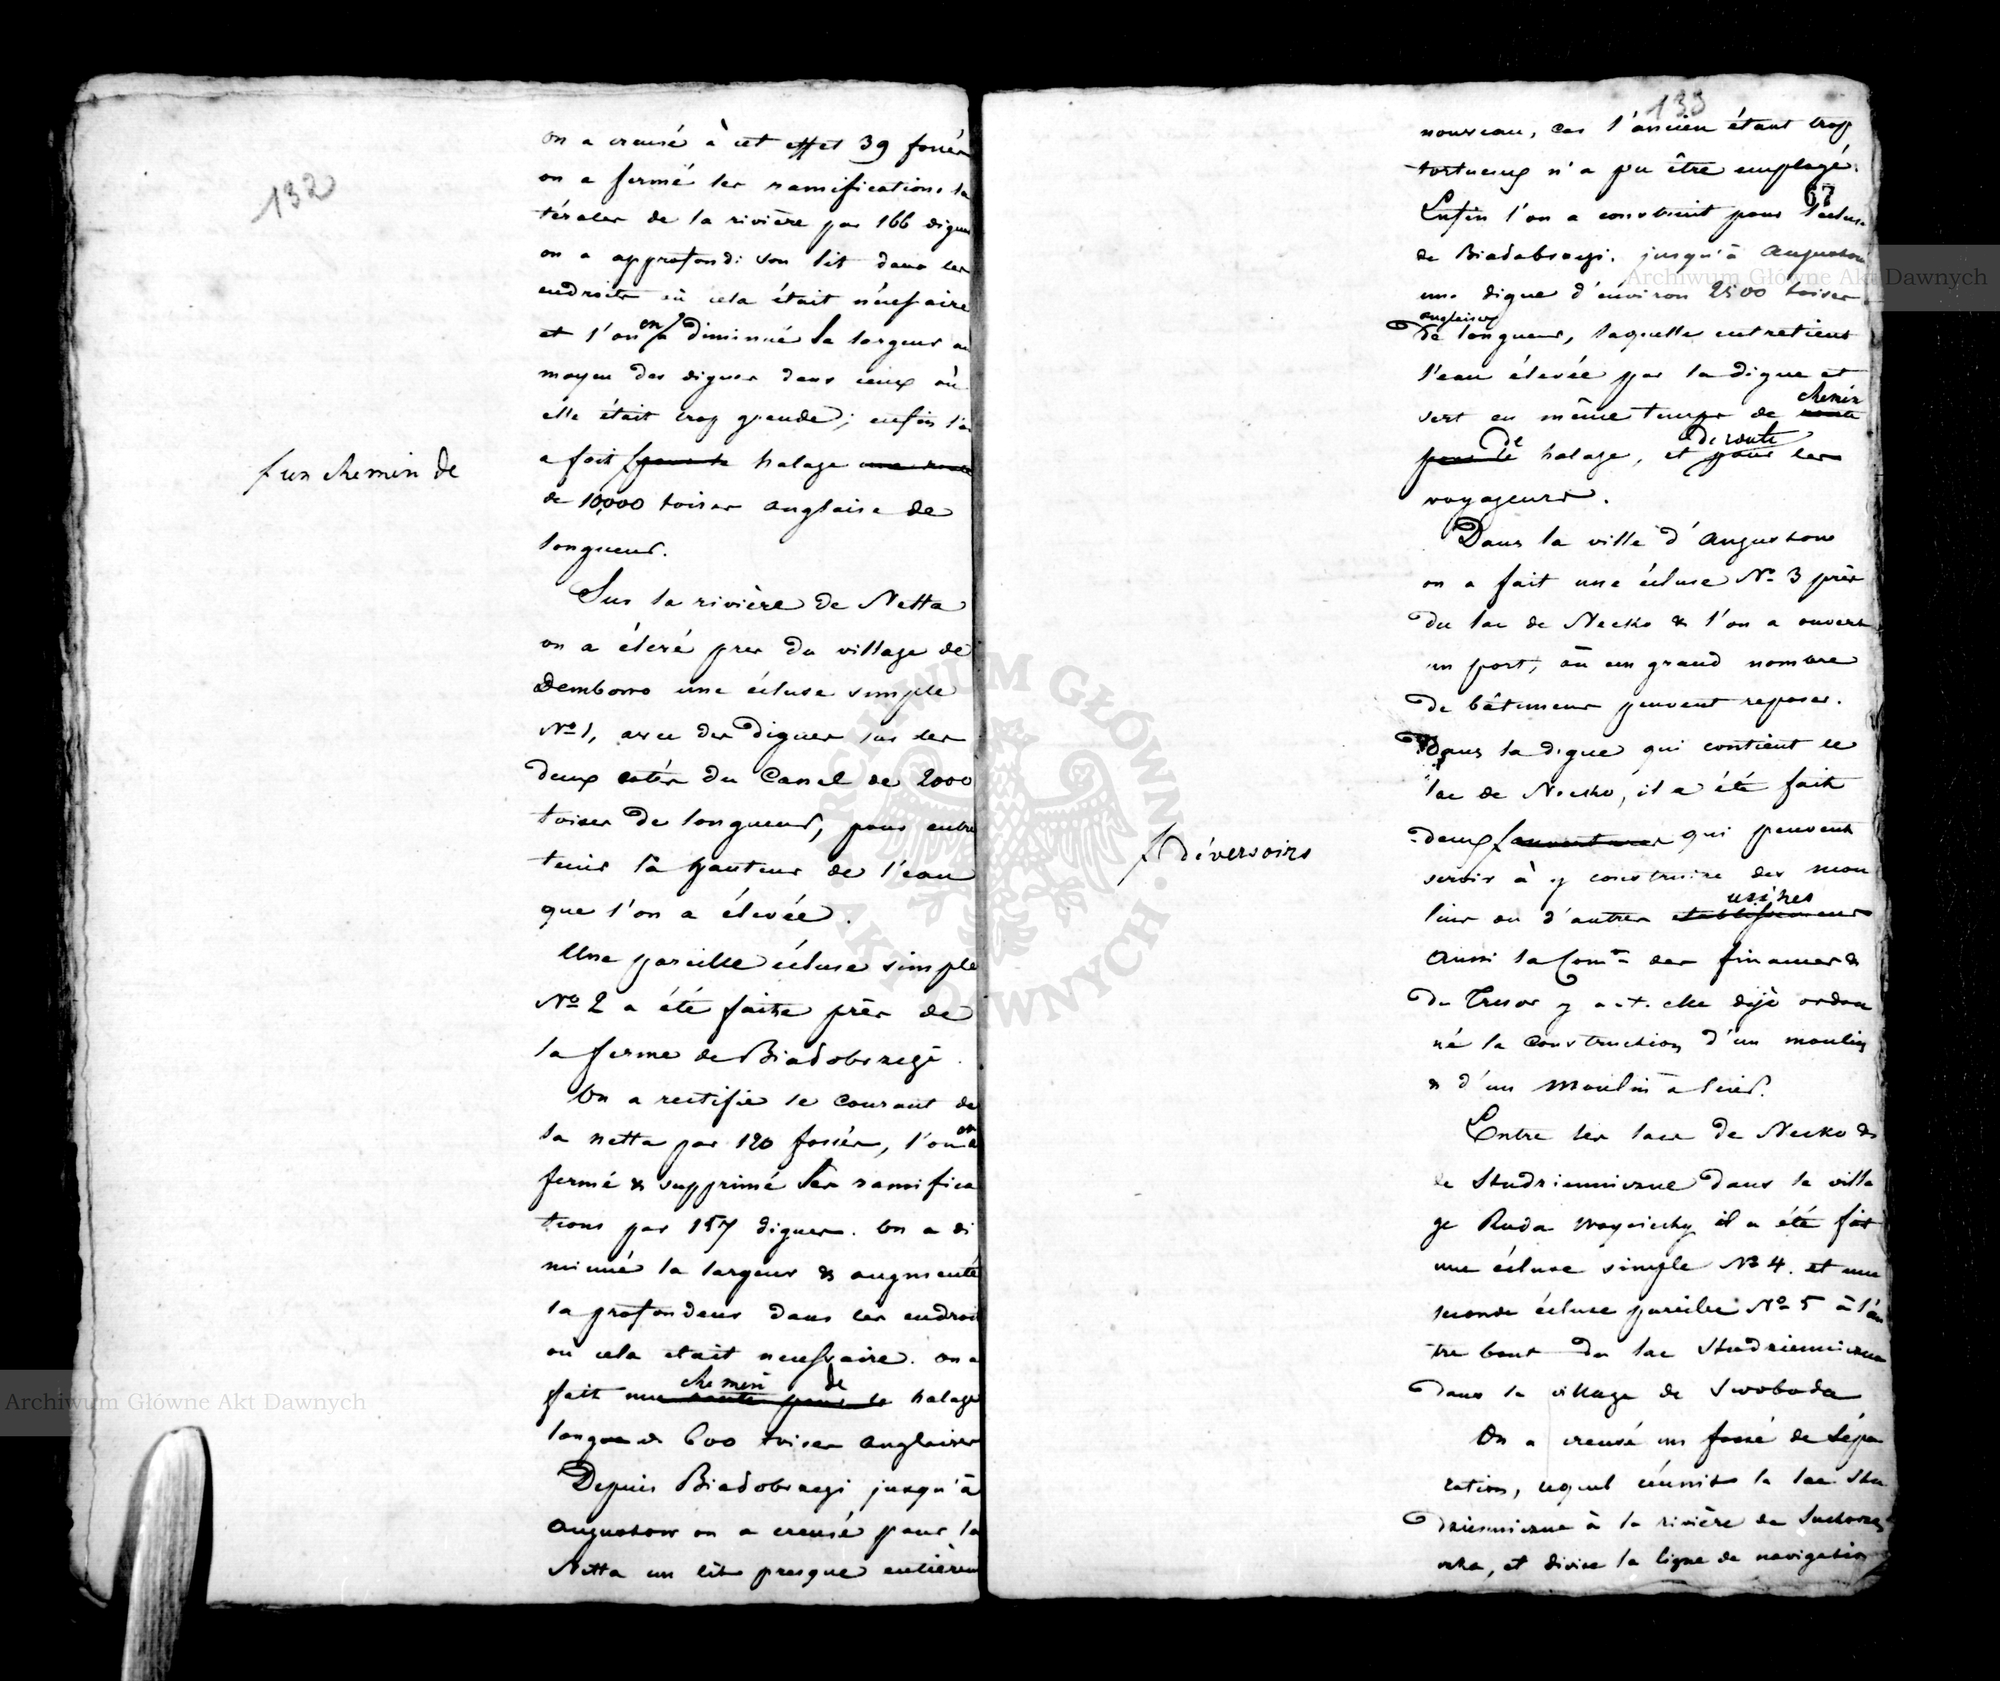 132
on a creusé à cet effet 39 fossés
on a fermé les ramifications la
térales de la rivière par 166 digues
on a approfondi son lit dans les
endroits où cela était nécessaire
et l'on en a diminué la largeur au
moyen des digues dans ceux où
elle était trop grande; enfin l'on
a fait pour le halage une route
un chemin de
de 10,000 toises anglaise de
longueur.
Sur la rivière de Netta
on a élevé pres du village de
Dembowo une écluse simple
No 1, avec des digues sur les
deux cotés du Canal de 2000
toises de longueur, pour entre
tenir la hauteur de l'eau
que l'on a élevée.
Une pareille écluse simple
No 2 a été faite près de
la ferme de Biadobrzegi.
On a rectifié le courant de
la netta par 120 fossés, l'on en a
fermé & supprimé les ramifica
tions par 157 digues. On a di
minué la largeur & augmenté
la profondeur dans les endroits
ou cela etait necessaire. On a
chemin de
fait une route pour le halage
longue de 600 toises anglaises
Depuis Biadobrzegi jusqu'à
Augustow on a creusé pour la
Netta un lit presque entièrem
133
nouveau, car l'ancien étant trop
tortueux n'a pu être employé.
67
Enfin l'on a construit pour l'écluse
de Biadobrzegi. jusqu'à Augustow
une digue d'environ 2500 toises
anglaises
de longueur, laquelle entretient
l'eau élevée par la digue et
chemin
sert en même temps de route
de de route
pour le halage, et pour les
voyageurs.
Dans la ville d'Augustow
on a fait une écluse No 3 près
du lac de Necko & l'on a ouvert
un port, où un grand nombre
de bâtimens peuvent reposer.
Dans la digue qui contient le
lac de Necko, il a été fait
deux ouvertures qui peuvent
déversoirs
servir à y construire des mou
usines
lins ou d'autres etablissemens
Aussi la Comn des finances &
du Tresor y a-t-elle déjà ordon
né la construction d'un moulin
& d'un moulin à scier.
Entre les lacs de Necko &
de Studzienniczne dans le villa
ge Ruda Woyciechy il a été fait
une écluse simple No 4. et une
seconde écluse pareille No 5 à l'au
tre bout du lac Studzienniczne
dans le village de Swoboda
On a creusé un fossé de sépa
ration, lequel réunit le lac Stu
dzienniczne à la rivière de Suchorze
czka, et divise la ligne de navigation
Archiwum Główne Akt Dawnych
Archiwum Główne Akt Dawnych
ARCHIWUM GŁÓWNE AKT DAWNYCH